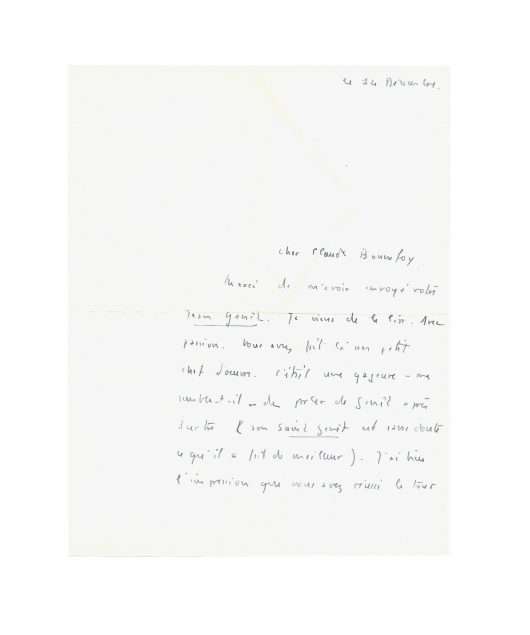 le 24 Décembre.
Cher Claude Bonnefoy
Merci de m'avoir envoyé votre
Jean Genêt. Je viens de le lire. Avec
passion. Vous avez fait là un petit
chef d'œuvre. C'était une gageure - me
semblait-il - de parler de Genêt après
Sartre (son Saint Genêt est sans doute
ce qu'il a fait de meilleur). J'ai bien
l'impression que vous avez réussi le tour